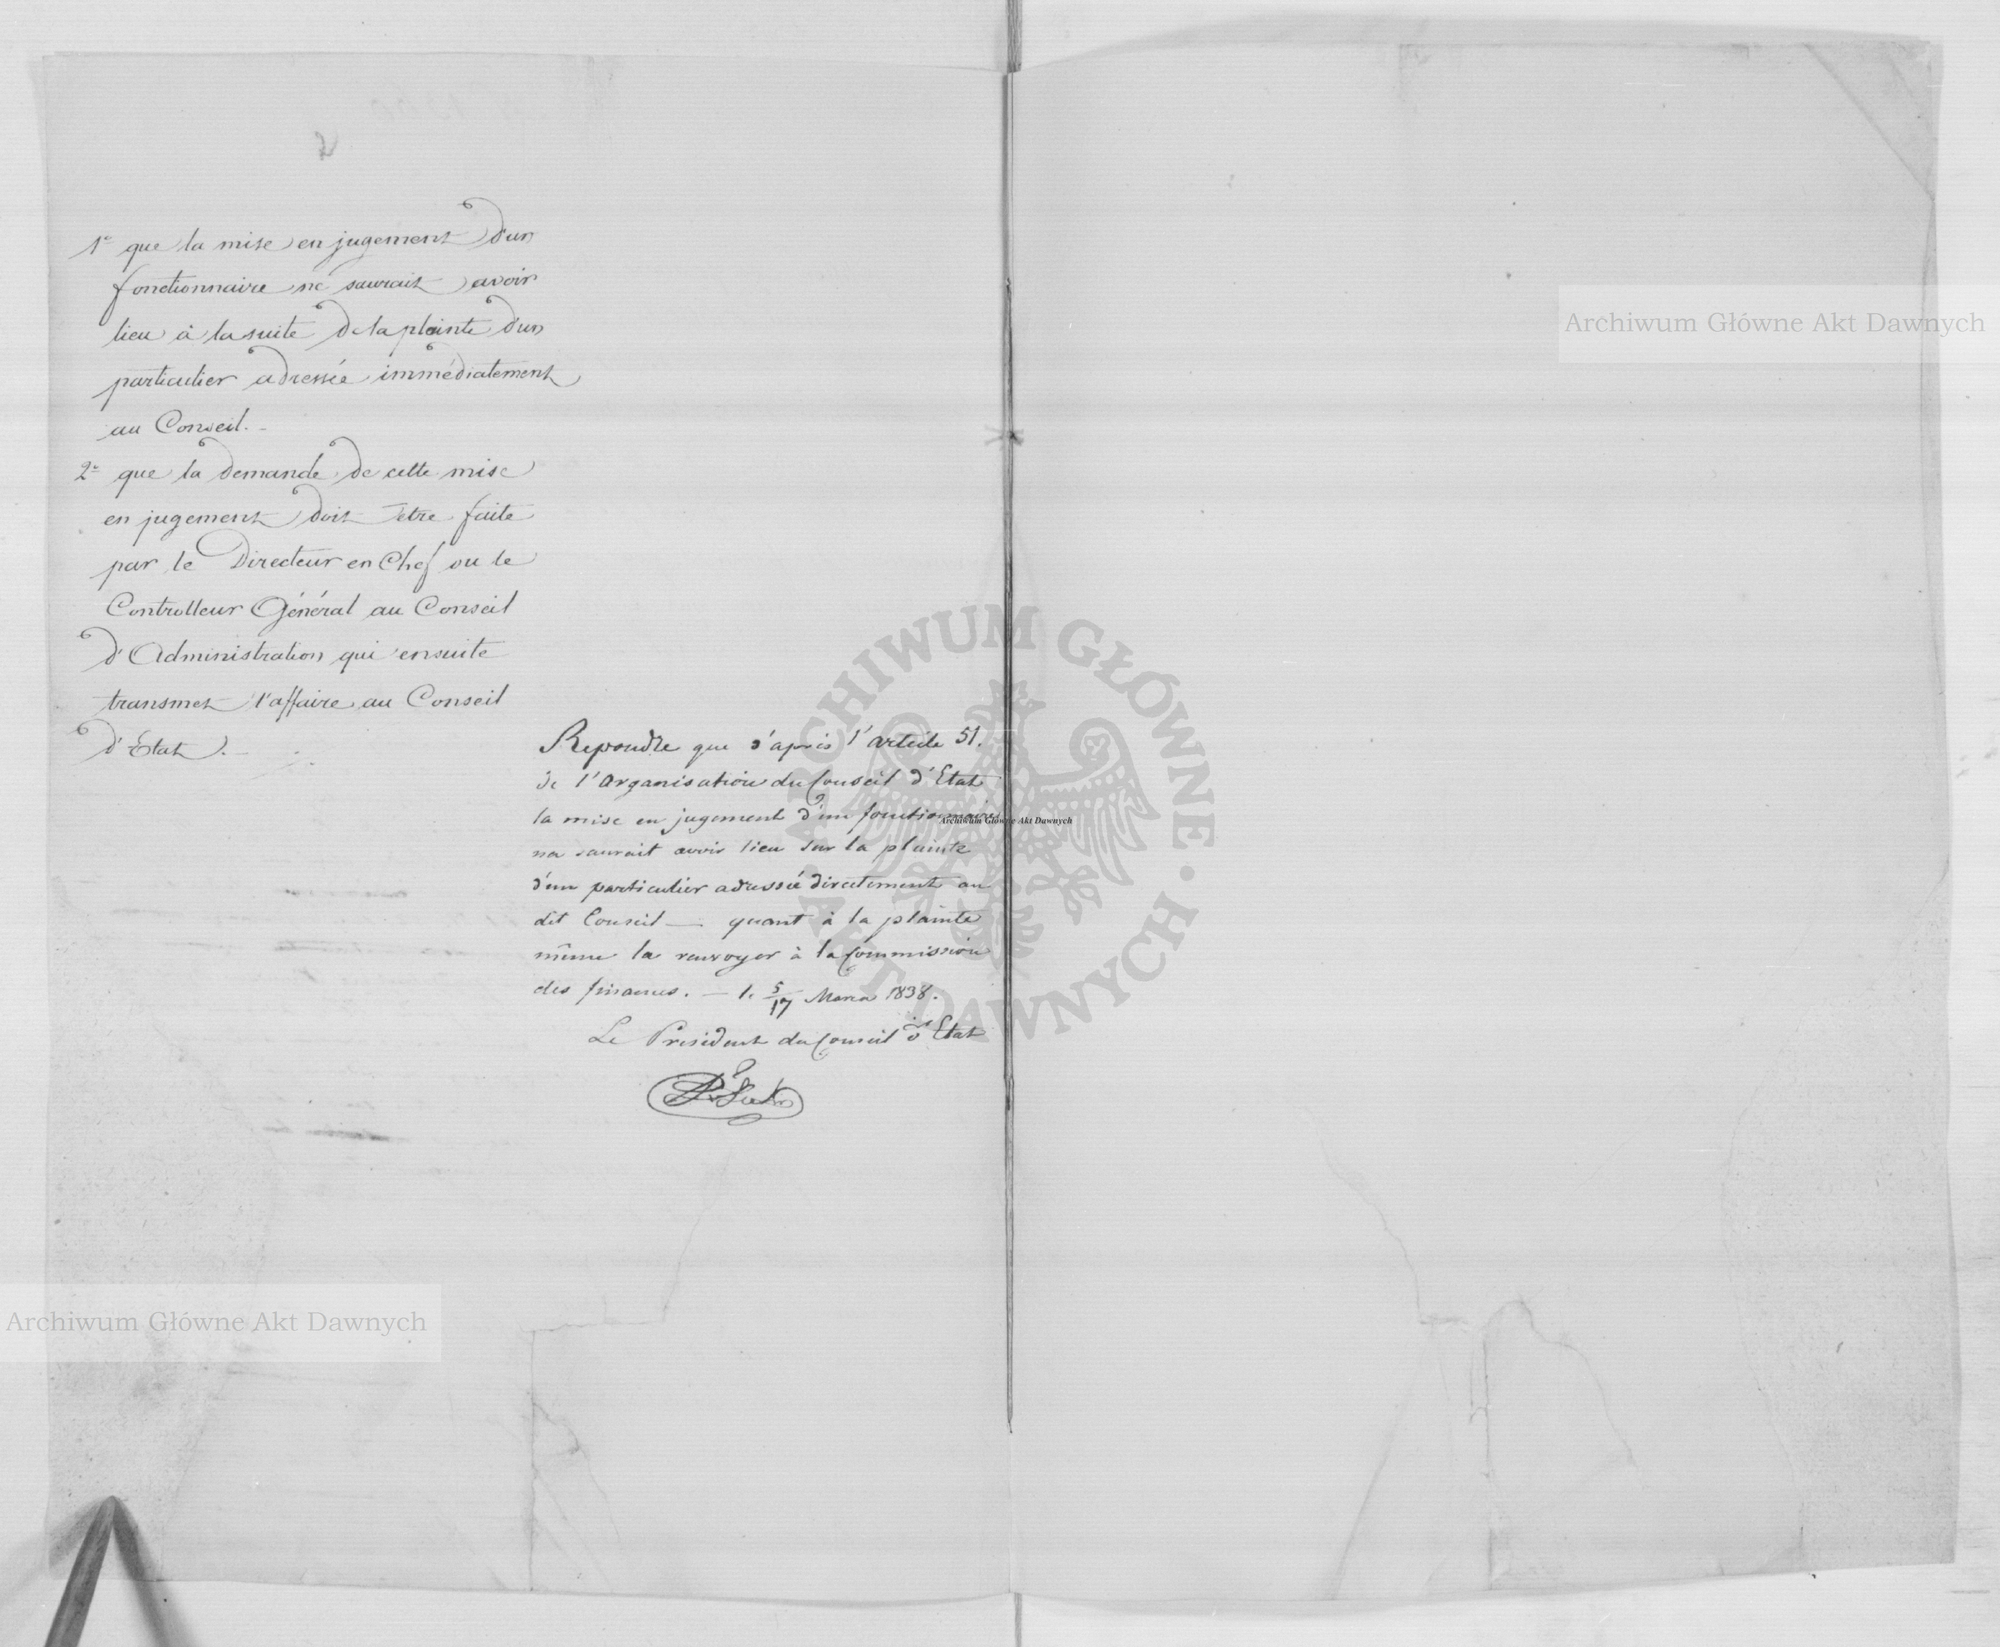 1º que la mise en jugement d'un
fonctionnaire ne saurait avoir
lieu à la suite de la plainte d'un
particulier adressée immédiatement
au Conseil. -
2º que la demande de cette mise
en jugement doit etre faite
par le Directeur en Chef ou le
Controlleur Général au Conseil
d'Administration qui ensuite
transmet l'affaire au Conseil
d'Etat. -
Repondre que d'après l'article 51.
de l'organisation du Conseil d'Etat
la mise en jugement d'un fonctionnaire
ne saurait avoir lieu sur la plainte
d'un particulier adressée directement au
dit Conseil — quant à la plainte
même la renvoyer à la Commission
des finances. — le 5/17 Mars 1838.
Le President du Conseil d'Etat
Archiwum Główne Akt Dawnych
Archiwum Główne Akt Dawnych
Archiwum Główne Akt Dawnych
ARCHIWUM GŁÓWNE • AKT DAWNYCH •